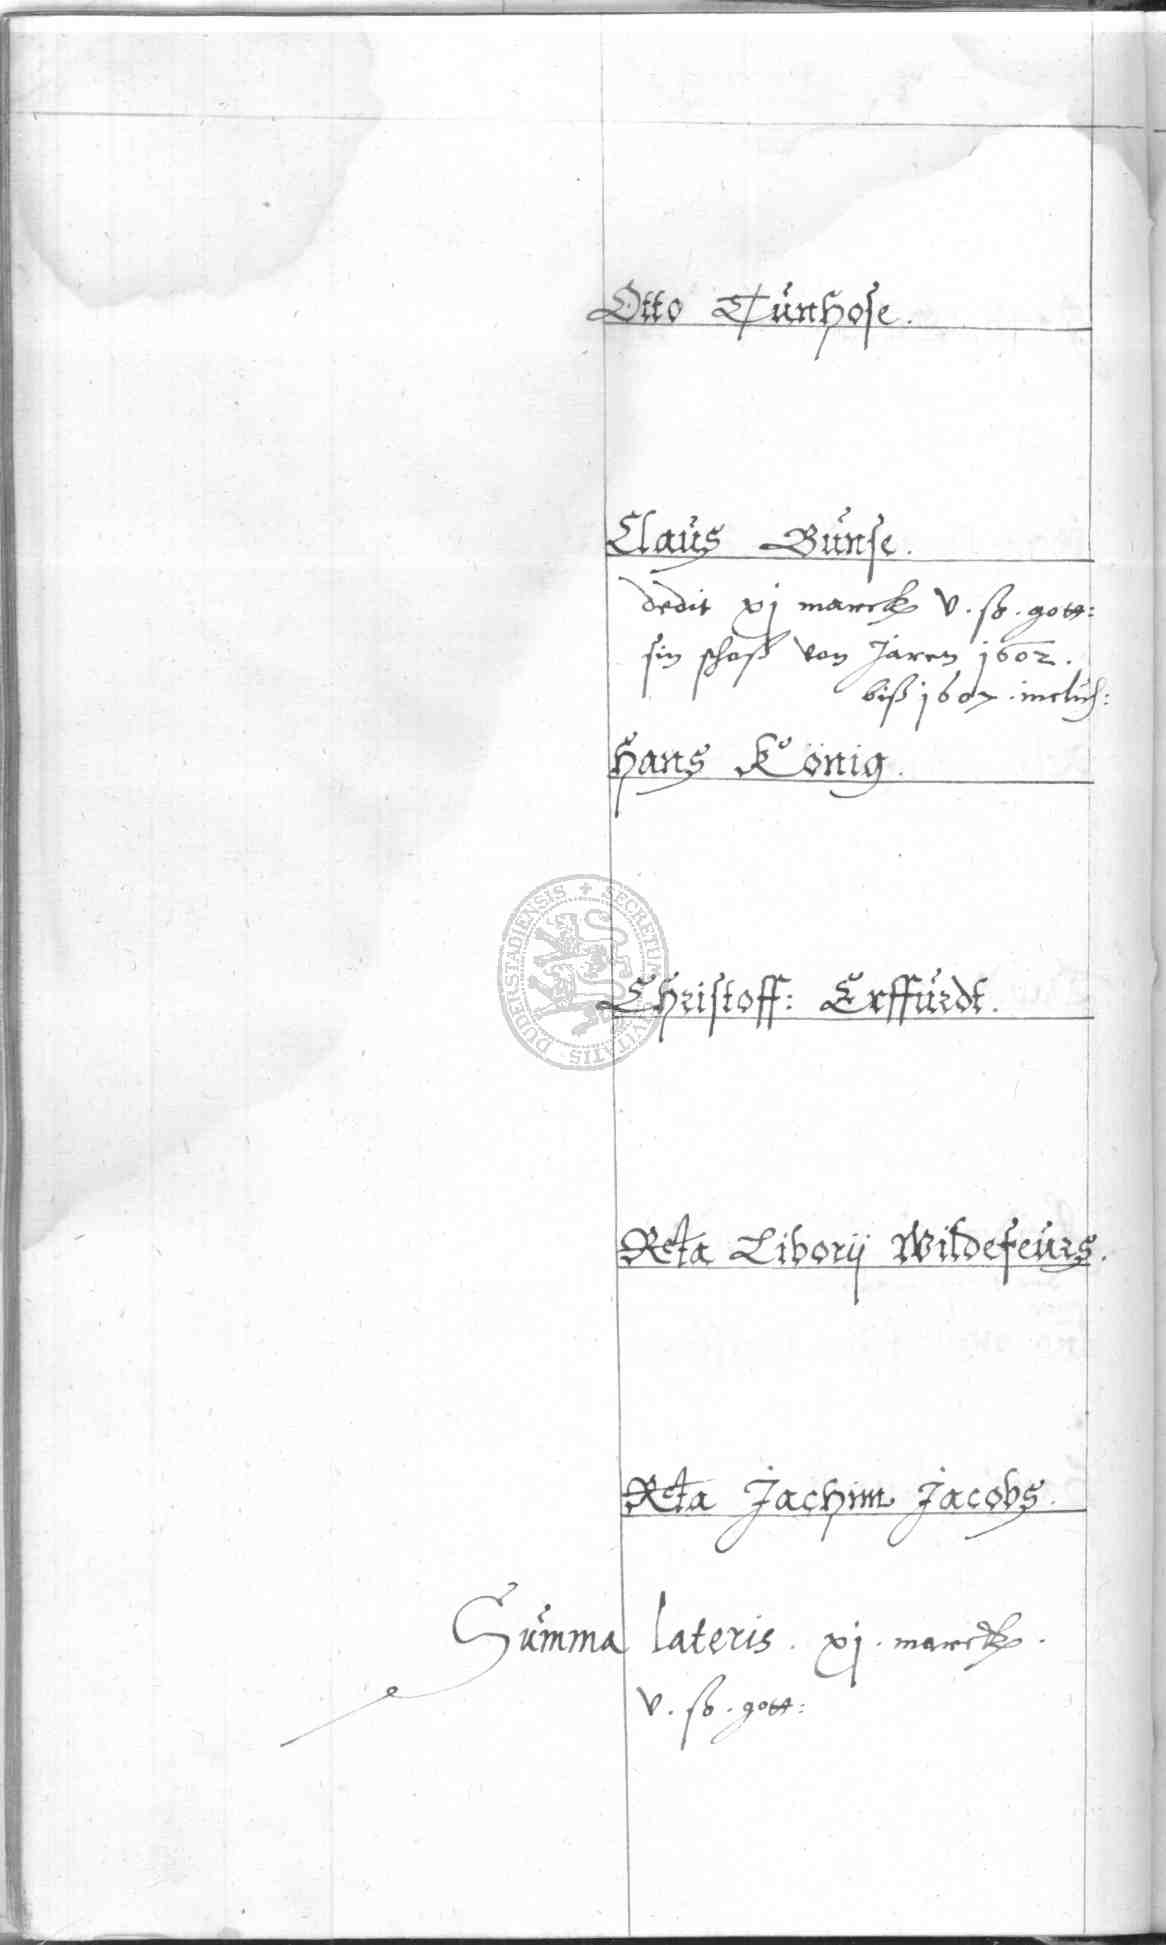 Otto Tünhose.
Claus Bunse.
dedit xj marck v. ß. gott:
sin schoß von Jaren 1602.
biß 1607. inclus:
Hans König.
SECRETUM CIVITATIS DUDERSTADIENSIS
Christoff: Erffurdt.
Rcta Liborij Wildefeurs.
Rcta Jachim Jacobs.
Summa lateris. xj. marck.
v. ß. gott: